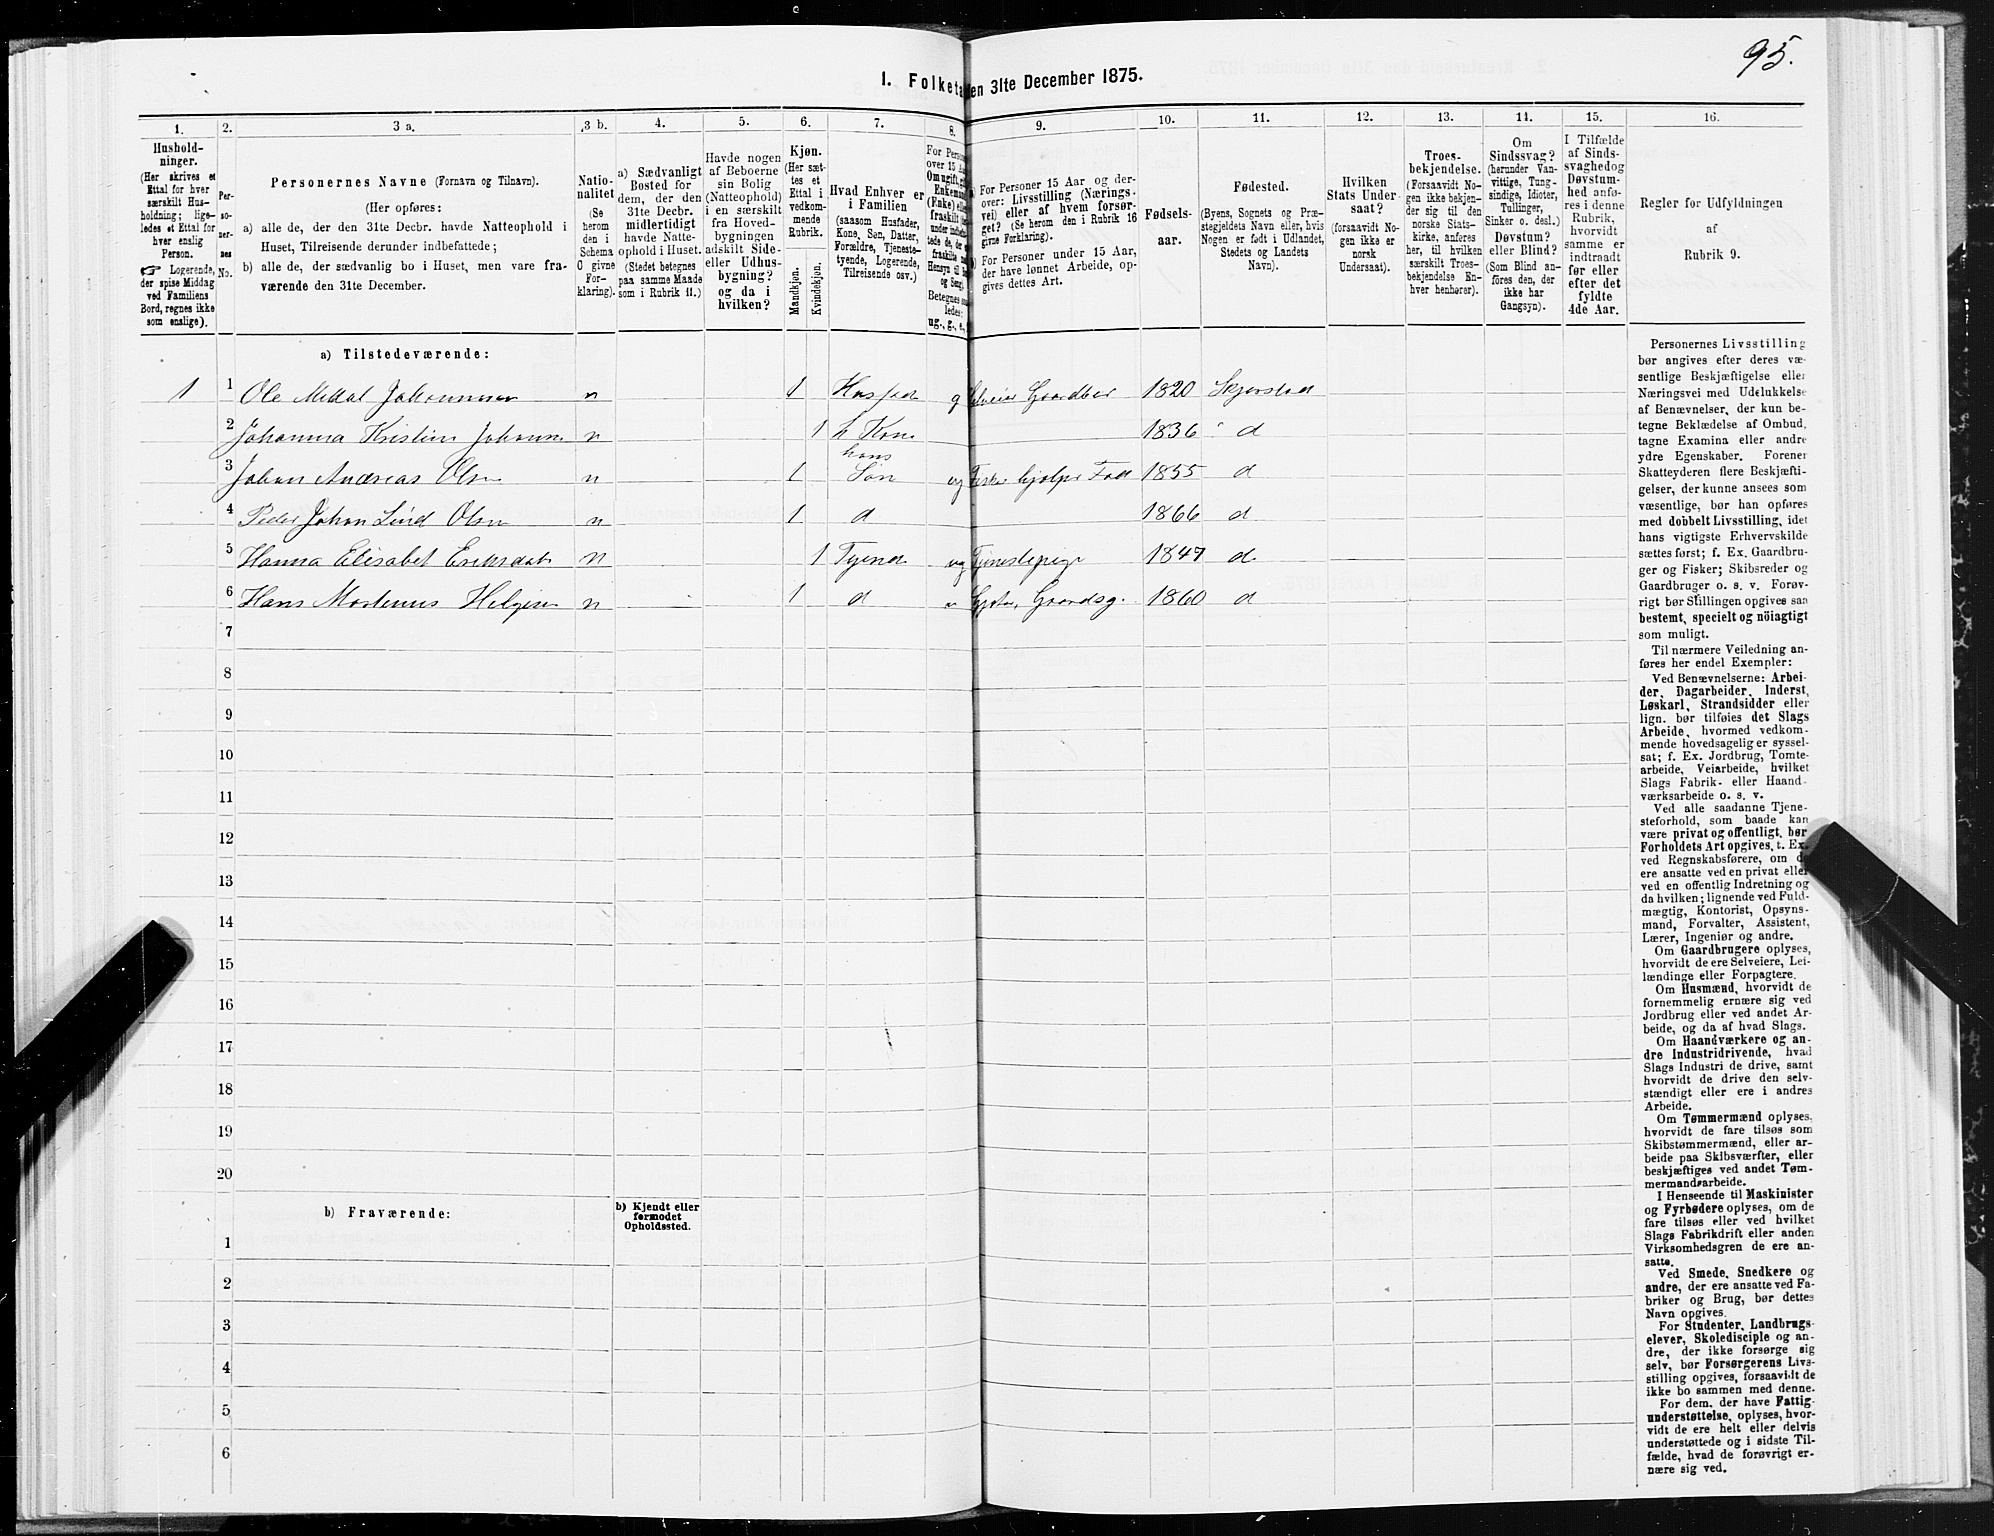 95.
1. Folketa en 31te December 1875.
1. 2. 3 a. 3 b. 4. 5. 6. 7. 8. 9. 10. 11. 12. 13. 14. 15. 16.
Hushold-
ninger.
(Her skrives et
Ettal for hver
særskilt Hus-
holdning; lige-
ledes et Ettal for
hver enslig
Person.
☞ Logerende,
der spise Middag
ved Familiens
Bord, regnes ikke
som enslige).
Per-
so-
ner-
nes
No.
Personernes Navne (Fornavn og Tilnavn).
(Her opføres:
a) alle de, der den 31te Decbr. havde Natteophold i
Huset, Tilreisende derunder indbefattede;
b) alle de, der sædvanlig bo i Huset, men vare fra-
værende den 31te December.
Natio-
nalitet
(Se
herom
den i
Schema
O givne
For-
klaring).
a) Sædvanligt
Bosted for
dem, der den
31te Decbr.
midlertidigt
havde Natte-
ophold i Huset.
(Stedet betegnes
paa samme Maade
som i Rubrik 11.)
Havde nogen
af Beboerne
sin Bolig
(Natteophold)
i en særskilt
fra Hoved-
bygningen
adskilt Side-
eller Udhus-
bygning?
og da i
hvilken?
Kjøn.
(Her sæt-
tes et
Ettal i
vedkom-
mende
Rubrik.
Mandkjøn.
Kvindekjøn.
Hvad Enhver er
i Familien
(saasom Husfader,
Kone, Søn, Datter,
Forældre, Tjeneste-
tyende, Logerende,
Tilreisende osv.)
For Perso
over 15 Aa
Om ugift, gi
Enkeman
(Enke) elle
fraskilt
Hensyn til
og Seng
Betegnes
ledes:
ug., g., e.,
a) For Personer 15 Aar og der-
over: Livsstilling (Nærings-
vei) eller af hvem forsør-
get? (Se herom den i Rubrik 16
givne Forklaring).
b) For Personer under 15 Aar,
der have lønnet Arbeide, op-
gives dettes Art.
Fødsels-
aar.
Fødested.
(Byens, Sognets og Præ-
stegjeldets Navn eller, hvis
Nogen er født i Udlandet,
Stedets og Landets
Navn).
Hvilken
Stats Under-
saat?
(forsaavidt No-
gen ikke er
norsk
Undersaat).
Troes-
bekjendelse.
(Forsaavidt No-
gen ikke bekjen-
der sig til den
norske Stats-
kirke, anføres
her, til hvilken
særskilt Troes-
bekjendelse En-
hver henhører).
Om
Sindssvag?
(herunder Van-
vittige, Tung-
sindige, Idioter,
Tullinger,
Sinker o. desl.)
Døvstum?
eller Blind?
(Som Blind an-
føres den, der
ikke har
Gangsyn).
I Tilfælde
af Sinds-
svaghedog
Døvstum-
hed anfø-
res i denne
Rubrik,
hvorvidt
samme er
indtraadt
før eller
efter det
fyldte
4de Aar.
Regler for Udfyldningen
af
Rubrik 9.
a) Tilstedeværende:
1 1 Ole Mdal Johannesen n 1 Husfad g Selveier Gaardbr 1820 Skjerstad
2 Johanna Kristin Johann n 1 h Kone 1836 d
3 Johan Andreas Olsen n 1 hans Søn ug Fisker hjælper Fad 1855 d
4 Peder Johan Lind Olsen n 1 d 1866 d
5 Hanna Elisabet Eriksdat n 1 Tyende ug Tjenestepige 1847 d
6 Hans Mortenus Helgesen n 1 d Gaardsg. 1860 d
7
8
9
10
11
12
13
14
15
16
17
18
19
20
b) Fraværende:
b) Kjendt eller
formodet
Opholdssted.
1
2
3
4
5
6
Personernes Livsstilling
bør angives efter deres væ-
sentlige Beskjæftigelse eller
Næringsvei med Udelukkelse
af Benævnelser, der kun be-
tegne Beklædelse af Ombud,
tagne Examina eller andre
ydre Egenskaber. Forener
Skatteyderen flere Beskjæfti-
gelser, der kunne ansees som
væsentlige, bør han opføres
med dobbelt Livsstilling, idet
hans vigtigste Erhvervskilde
sættes først; f. Ex. Gaardbru-
ger og Fisker; Skibsreder og
Gaardbruger o. s. v. Forøv-
rigt bør Stillingen opgives saa
bestemt, specielt og nöiagtigt
som muligt.
Til nærmere Veiledning an-
føres her endel Exempler:
Ved Benævnelserne: Arbei-
der, Dagarbeider, Inderst,
Løskarl, Strandsidder eller
lign. bør tilføies det Slags
Arbeide, hvormed vedkom-
mende hovedsagelig er syssel-
sat; f. Ex. Jordbrug, Tomte-
arbeide, Veiarbeide, hvilket
Slags Fabrik- eller Haand-
værksarbeide o. s. v.
Ved alle saadanne Tjene-
steforhold, som baade kan
være privat og offentligt, bør
Forholdets Art opgives, t. Ex.
ved Regnskabsførere, om de
ere ansatte ved en privat eller
ved en offentlig Indretning og
da hvilken; lignende ved Fuld-
mægtig, Kontorist, Opsyns-
mand, Forvalter, Assistent,
Lærer, Ingeniør og andre.
Om Gaardbrugere oplyses,
hvorvidt de ere Selveiere, Lei-
lændinge eller Forpagtere.
Om Husmænd, hvorvidt de
fornemmelig ernære sig ved
Jordbrug eller ved andet Ar-
beide, og da af hvad Slags.
Om Haandværkere og an-
dre Industridrivende, hvad
Slags Industri de drive, samt
hvorvidt de drive den selv-
stændigt eller ere i andres
Arbeide.
Om Tømmermænd oplyses,
hvorvidt de fare tilsøs som
Skibstømmermænd, eller ar-
beide paa Skibsværfter, eller
beskjæftiges ved andet Tøm-
mermandsarbeide.
I Henseende til Maskinister
og Fyrbødere oplyses, om de
fare tilsøs eller ved hvilket
Slags Fabrikdrift eller anden
Virksomhedsgren de ere an-
satte.
Ved Smede, Snedkere og
andre, der ere ansatte ved Fa-
briker og Brug, bør dettes
Navn opgives.
For Studenter, Landbrugs-
elever, Skoledisciple og an-
dre, der ikke forsørge sig
selv, bør Forsørgerens Livs-
stilling opgives, forsaavidt de
ikke bo sammen med denne.
For dem, der have Fattig-
understøttelse, oplyses, hvor-
vidt de ere helt eller delvis
understøttede og i sidste Til-
fælde, hvad de forøvrigt er-
nære sig ved.